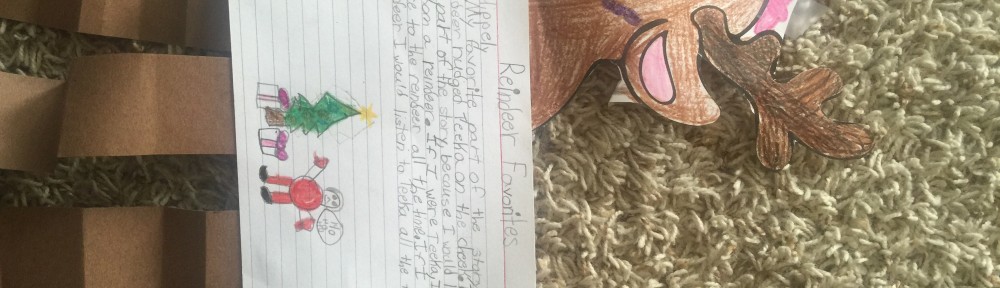 Reindeer Favorites
My favorite part of the story
deer nudged Teeka on the cheek
part of the story because I would
on a reindeer. If I were Teeka, I
to the reindeer all the time. If I
I would listen to Teeka all the